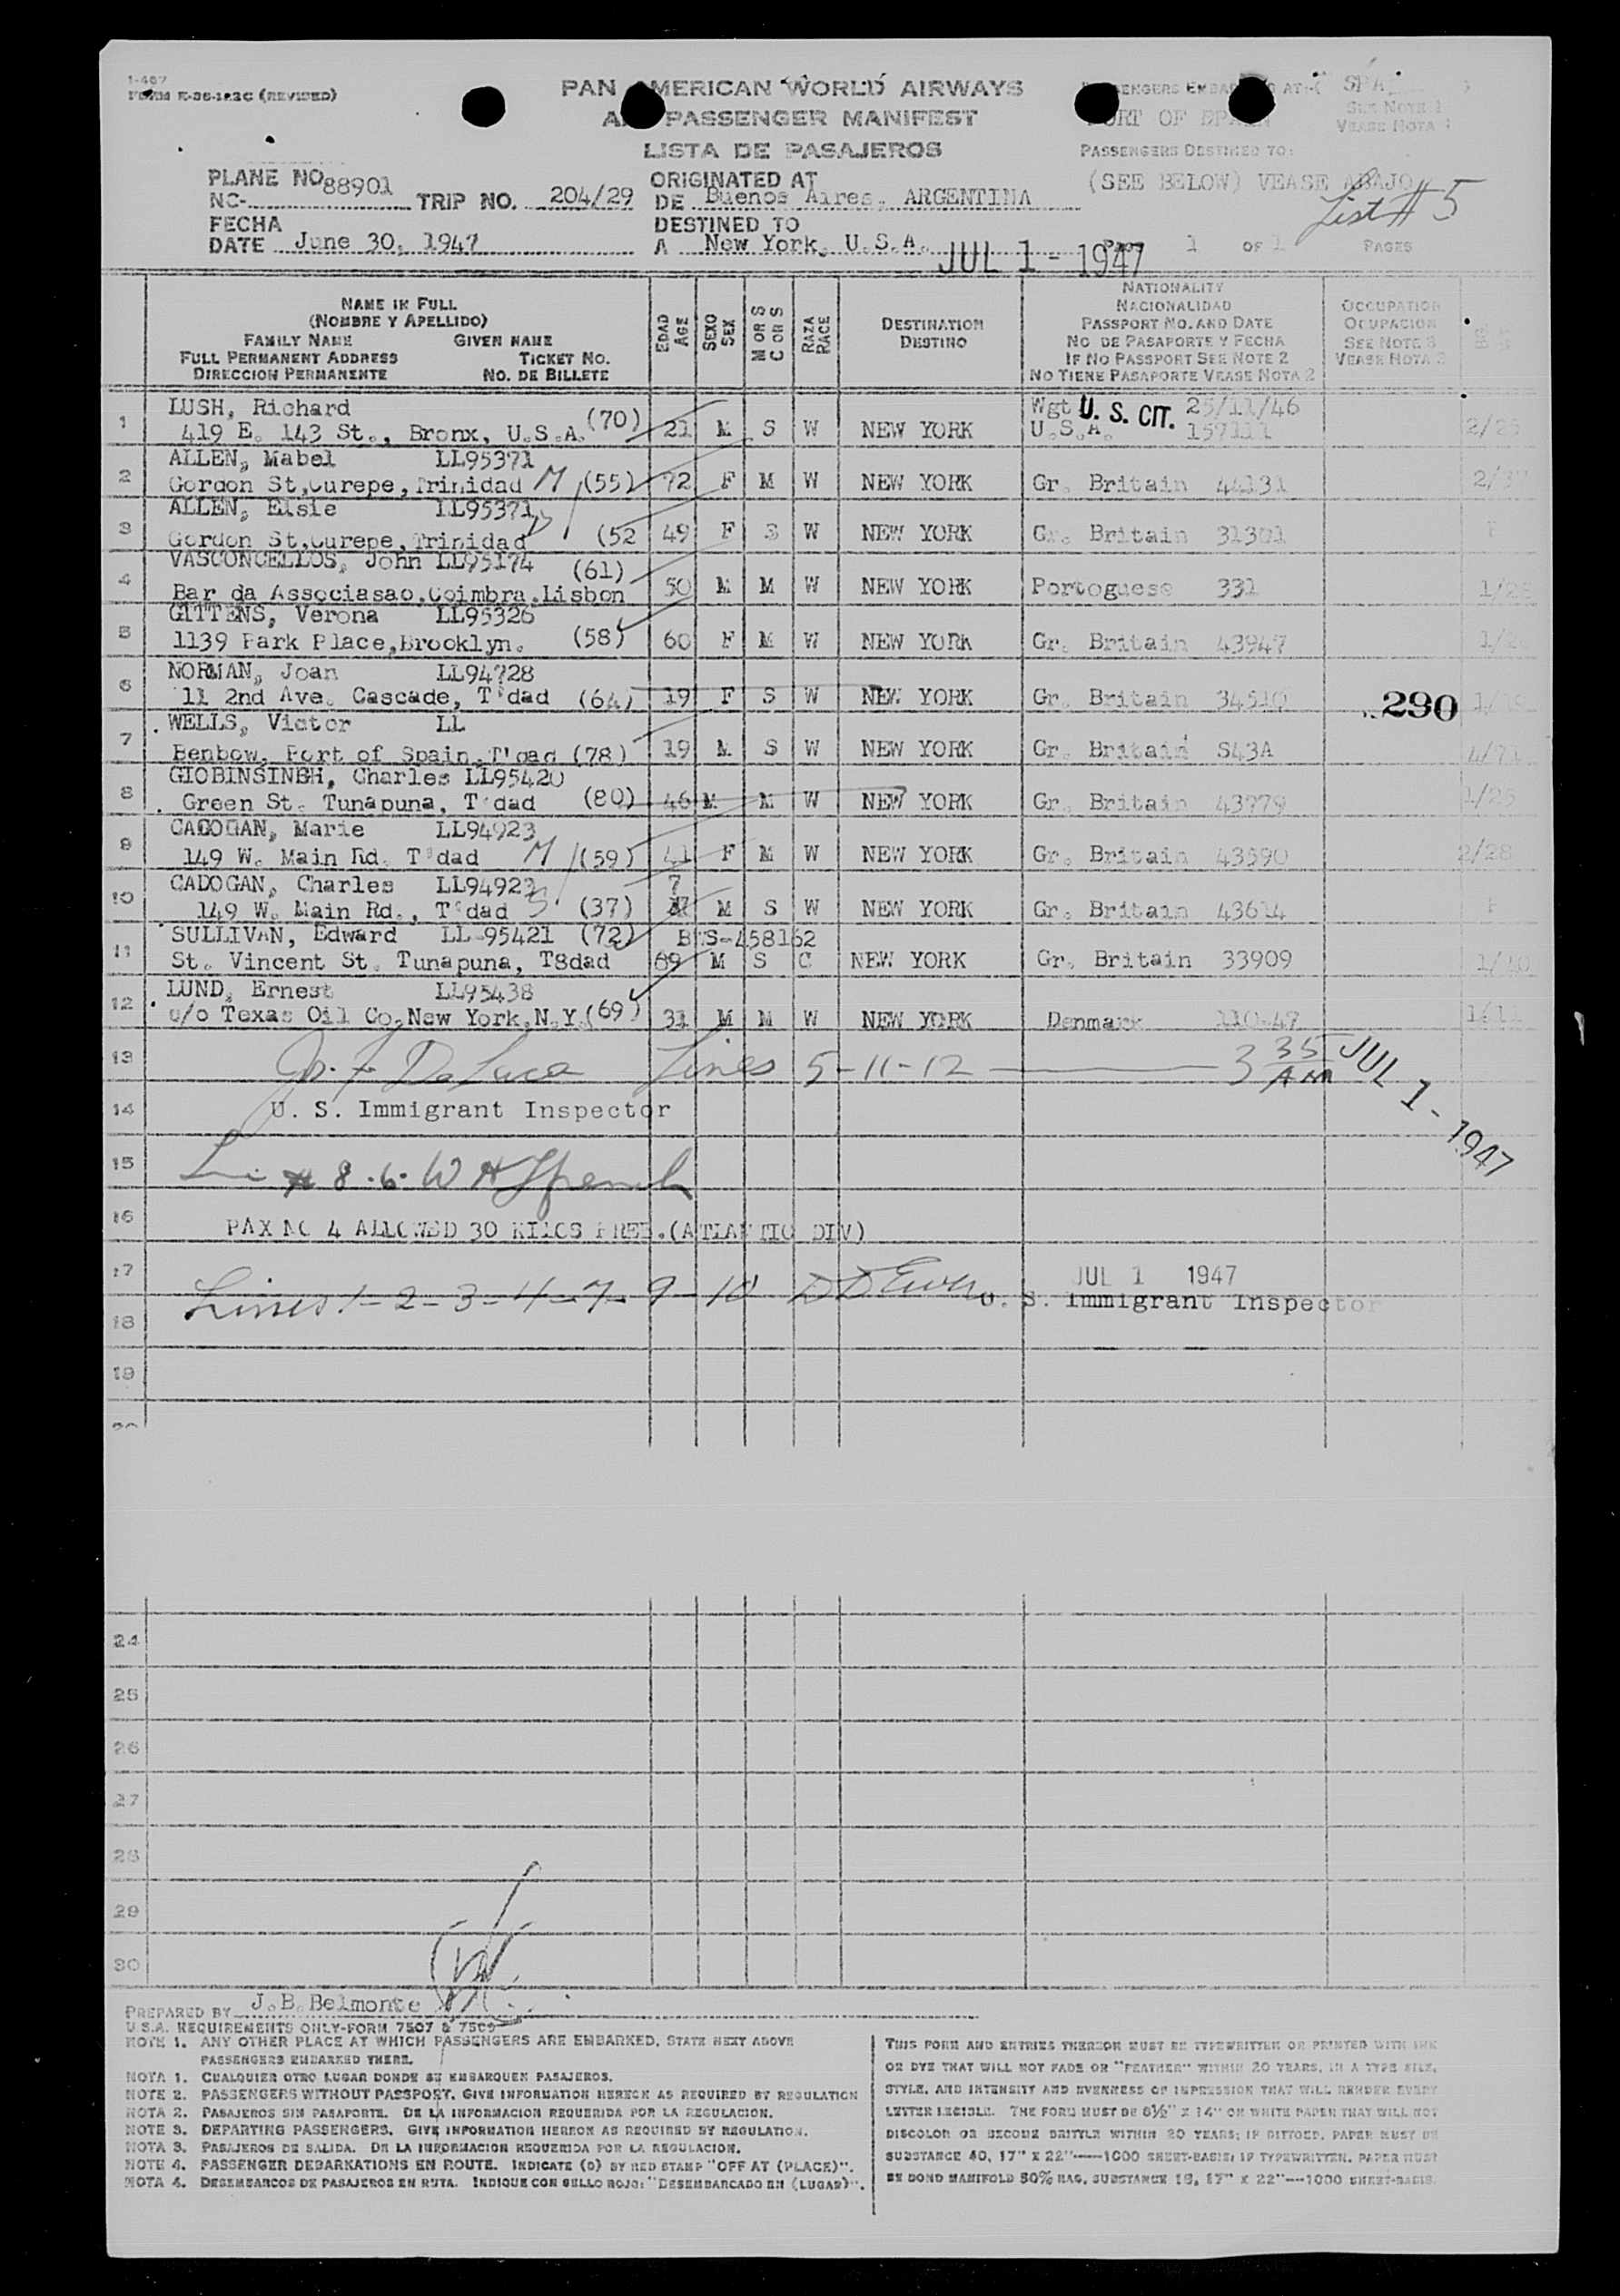 I-467
FORM E-36-1R2C (REVISED)
PAN AMERICAN WORLD AIRWAYS
PASSENGER MANIFEST
LISTA DE PASAJEROS
PASSENGERS DESTINED TO:
SEE NOTE 1
VEASE NOTA 1
(SEE BELOW) VEASE ABAJO
List # 5
PLANE NO 88901
NC-
TRIP NO. 204/29
FECHA
DATE June 30, 1947
ORIGINATED AT
DE Buenos Aires, ARGENTINA
DESTINED TO
A New York, U.S.A.
JUL 1 - 1947
1 OF 1 PAGES
NAME IN FULL
(NOMBRE Y APELLIDO)
FAMILY NAME GIVEN NAME
FULL PERMANENT ADDRESS TICKET NO.
DIRECCION PERMANENTE NO. DE BILLETE
EDAD AGE
SEXO SEX
M OR S
C OR S
RAZA RACE
DESTINATION
DESTINO
NATIONALITY
NACIONALIDAD
PASSPORT NO. AND DATE
NO DE PASAPORTE Y FECHA
IF NO PASSPORT SEE NOTE 2
NO TIENE PASAPORTE VEASE NOTA 2
OCCUPATION
OCUPACION
SEE NOTE 3
VEASE NOTA 3
1 LUSH, Richard (70) Wgt U. S. CIT. 25/11/46
419 E. 143 St., Bronx, U.S.A. 21 M S W NEW YORK U.S.A. 157111
2 ALLEN, Mabel LL95371
Gordon St, Curepe, Trinidad M (55) 72 F M W NEW YORK Gr. Britain 44131
3 ALLEN, Elsie LL95371
Gordon St, Curepe, Trinidad D (52 49 F S W NEW YORK Gr. Britain 31301
4 VASCONCELLOS, John LL95174 (61)
Bar da Associasao, Coimbra, Lisbon 50 M M W NEW YORK Portoguese 331
5 GITTENS, Verona LL95326
1139 Park Place, Brooklyn. (58) 60 F M W NEW YORK Gr. Britain 43947
6 NORMAN, Joan LL94728
11 2nd Ave. Cascade, T'dad (64) 19 F S W NEW YORK Gr. Britain 34510 290
7 WELLS, Victor LL
Benbow, Port of Spain, T'dad (78) 19 M S W NEW YORK Gr. Britain S43A
8 GIOBINSINGH, Charles LL95420
Green St. Tunapuna, T'dad (80) 46 M M W NEW YORK Gr. Britain 43779
9 CADOGAN, Marie LL94923
149 W. Main Rd. T'dad M (59) 41 F M W NEW YORK Gr. Britain 43590 2/28
10 CADOGAN, Charles LL94923 7
149 W. Main Rd., T'dad S (37) M S W NEW YORK Gr. Britain 43614
11 SULLIVAN, Edward LL-95421 (72) BTS-458162
St. Vincent St. Tunapuna, T8dad 69 M S C NEW YORK Gr. Britain 33909
12 LUND, Ernest LL95438
c/o Texas Oil Co, New York, N.Y. (69) 31 M M W NEW YORK Denmark 110-47
13 Lines 5-11-12 3 35 AM JUL 1 - 1947
14 U. S. Immigrant Inspector
15 # 8.6.
16 PAX NO 4 ALLOWED 30 KILOS FREE.(ATLANTIC DIV)
17 JUL 1 1947
Lines 1-2-3-4-7-9-10 U. S. Immigrant Inspector
18
19
24
25
26
27
28
29
30
PREPARED BY J.B. Belmonte
U.S.A. REQUIREMENTS ONLY-FORM 7507 & 7509
NOTE 1. ANY OTHER PLACE AT WHICH PASSENGERS ARE EMBARKED, STATE NEXT ABOVE
PASSENGERS EMBARKED THERE.
NOTA 1. CUALQUIER OTRO LUGAR DONDE SE EMBARQUEN PASAJEROS.
NOTE 2. PASSENGERS WITHOUT PASSPORT. GIVE INFORMATION HEREON AS REQUIRED BY REGULATION
NOTA 2. PASAJEROS SIN PASAPORTE. DE LA INFORMACION REQUERIDA POR LA REGULACION.
NOTE 3. DEPARTING PASSENGERS. GIVE INFORMATION HEREON AS REQUIRED BY REGULATION.
NOTA 3. PASAJEROS DE SALIDA. DE LA INFORMACION REQUERIDA POR LA REGULACION.
NOTE 4. PASSENGER DEBARKATIONS EN ROUTE. INDICATE (D) BY RED STAMP "OFF AT (PLACE)".
NOTA 4. DESEMBARCOS DE PASAJEROS EN RUTA. INDIQUE CON SELLO ROJO: "DESEMBARCADO EN (LUGAR)".
THIS FORM AND ENTRIES THEREON MUST BE TYPEWRITTEN OR PRINTED WITH INK
OR DYE THAT WILL NOT FADE OR "FEATHER" WITHIN 20 YEARS, IN A TYPE SIZE,
STYLE, AND INTENSITY AND EVENNESS OF IMPRESSION THAT WILL RENDER EVERY
LETTER LEGIBLE. THE FORM MUST BE 8½" X 14" ON WHITE PAPER THAT WILL NOT
DISCOLOR OR BECOME BRITTLE WITHIN 20 YEARS; IF DITTOED, PAPER MUST BE
SUBSTANCE 40, 17" X 22"-----1000 SHEET-BASIS; IF TYPEWRITTEN, PAPER MUST
BE BOND MANIFOLD 50% RAG, SUBSTANCE 16, 17" X 22"---1000 SHEET-BASIS.